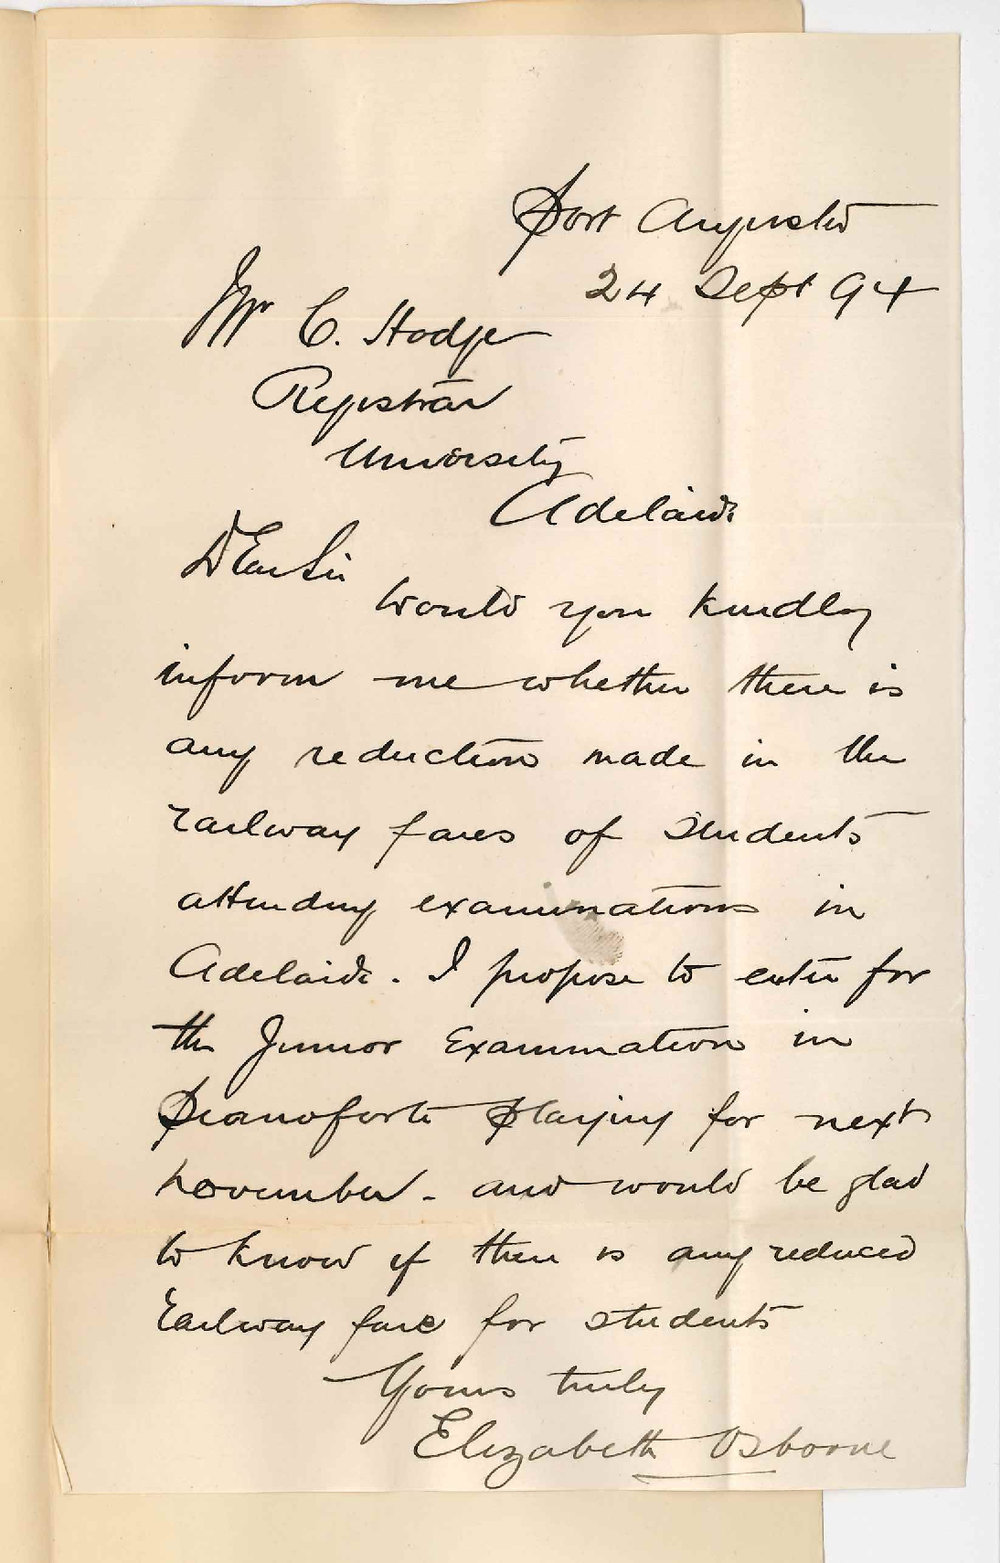 Port Augusta
24 Sept 94
Mr C. Hodge
Registrar
University
Adelaide
DEar Sir
Would you kindly
inform me whether there is
any reduction made in the
railway fares of Students
attending examinations in
Adelaide. I propose to enter for
the Junior Examination in
Pianoforte Playing for next
November - and would be glad
to know if there is any reduced
railway fare for students
Yours truly
Elizabeth Osborne